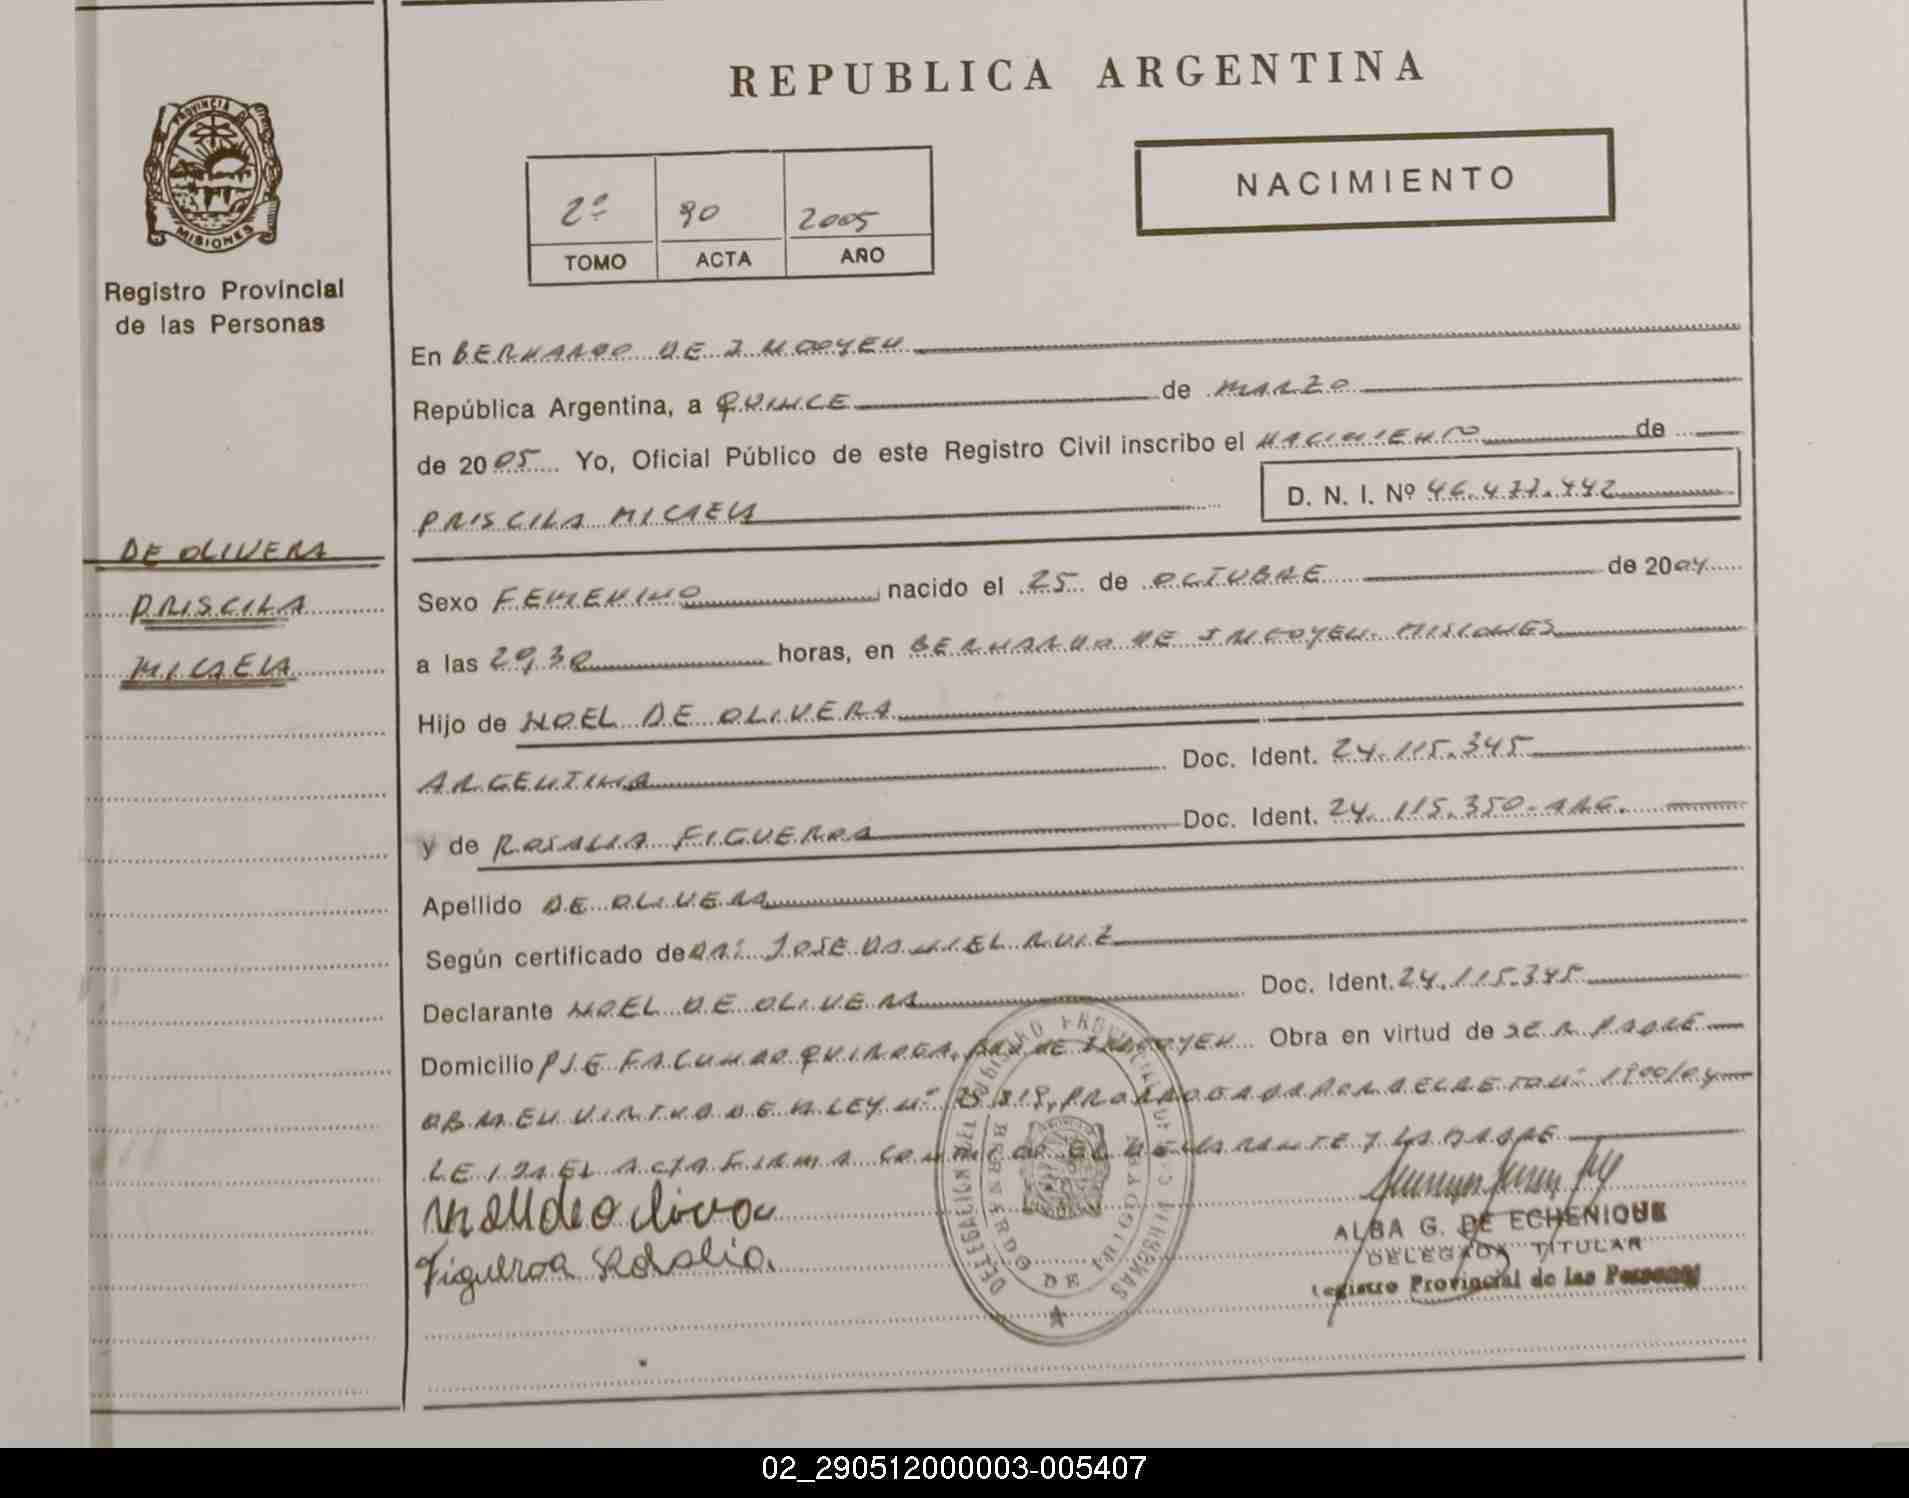 REPUBLICA ARGENTINA
PROVINCIA DE
MISIONES
Registro Provincial
de las Personas
NACIMIENTO
2º 90 2005
TOMO ACTA AÑO
En BERNARDO DE IRIGOYEN
República Argentina, a QUINCE de MARZO
de 2005 Yo, Oficial Público de este Registro Civil inscribo el NACIMIENTO de
PRISCILA MICAELA D. N. I. Nº 46.477.442
DE OLIVERA
PRISCILA
MICAELA
Sexo FEMENINO nacido el 25 de OCTUBRE de 2004
a las horas, en BERNARDO DE IRIGOYEN. MISIONES
Hijo de NOEL DE OLIVERA
ARGENTINA Doc. Ident. 24.115.345
y de ROSALIA FIGUEROA Doc. Ident. 24.115.350-ARG.
Apellido DE OLIVERA
Según certificado de JOSE DANIEL RUIZ
Declarante NOEL DE OLIVERA Doc. Ident. 24.115.345
Domicilio PJE FACUNDO QUIROGA, BDO DE IRIGOYEN Obra en virtud de SER PADRE
OBRA EN VIRTUD DE LA LEY Nº 25.819, PRORROGADA POR DECRETO Nº 1900/04
LEIDA EL ACTA FIRMA CONMIGO EL DECLARANTE Y LA MADRE
Figueroa Rosalia
DELEGACION DEL REGISTRO PROVINCIAL DE LAS PERSONAS
BERNARDO DE IRIGOYEN
ALBA G. DE ECHENIQUE
DELEGADA TITULAR
Registro Provincial de las Personas
02_290512000003-005407